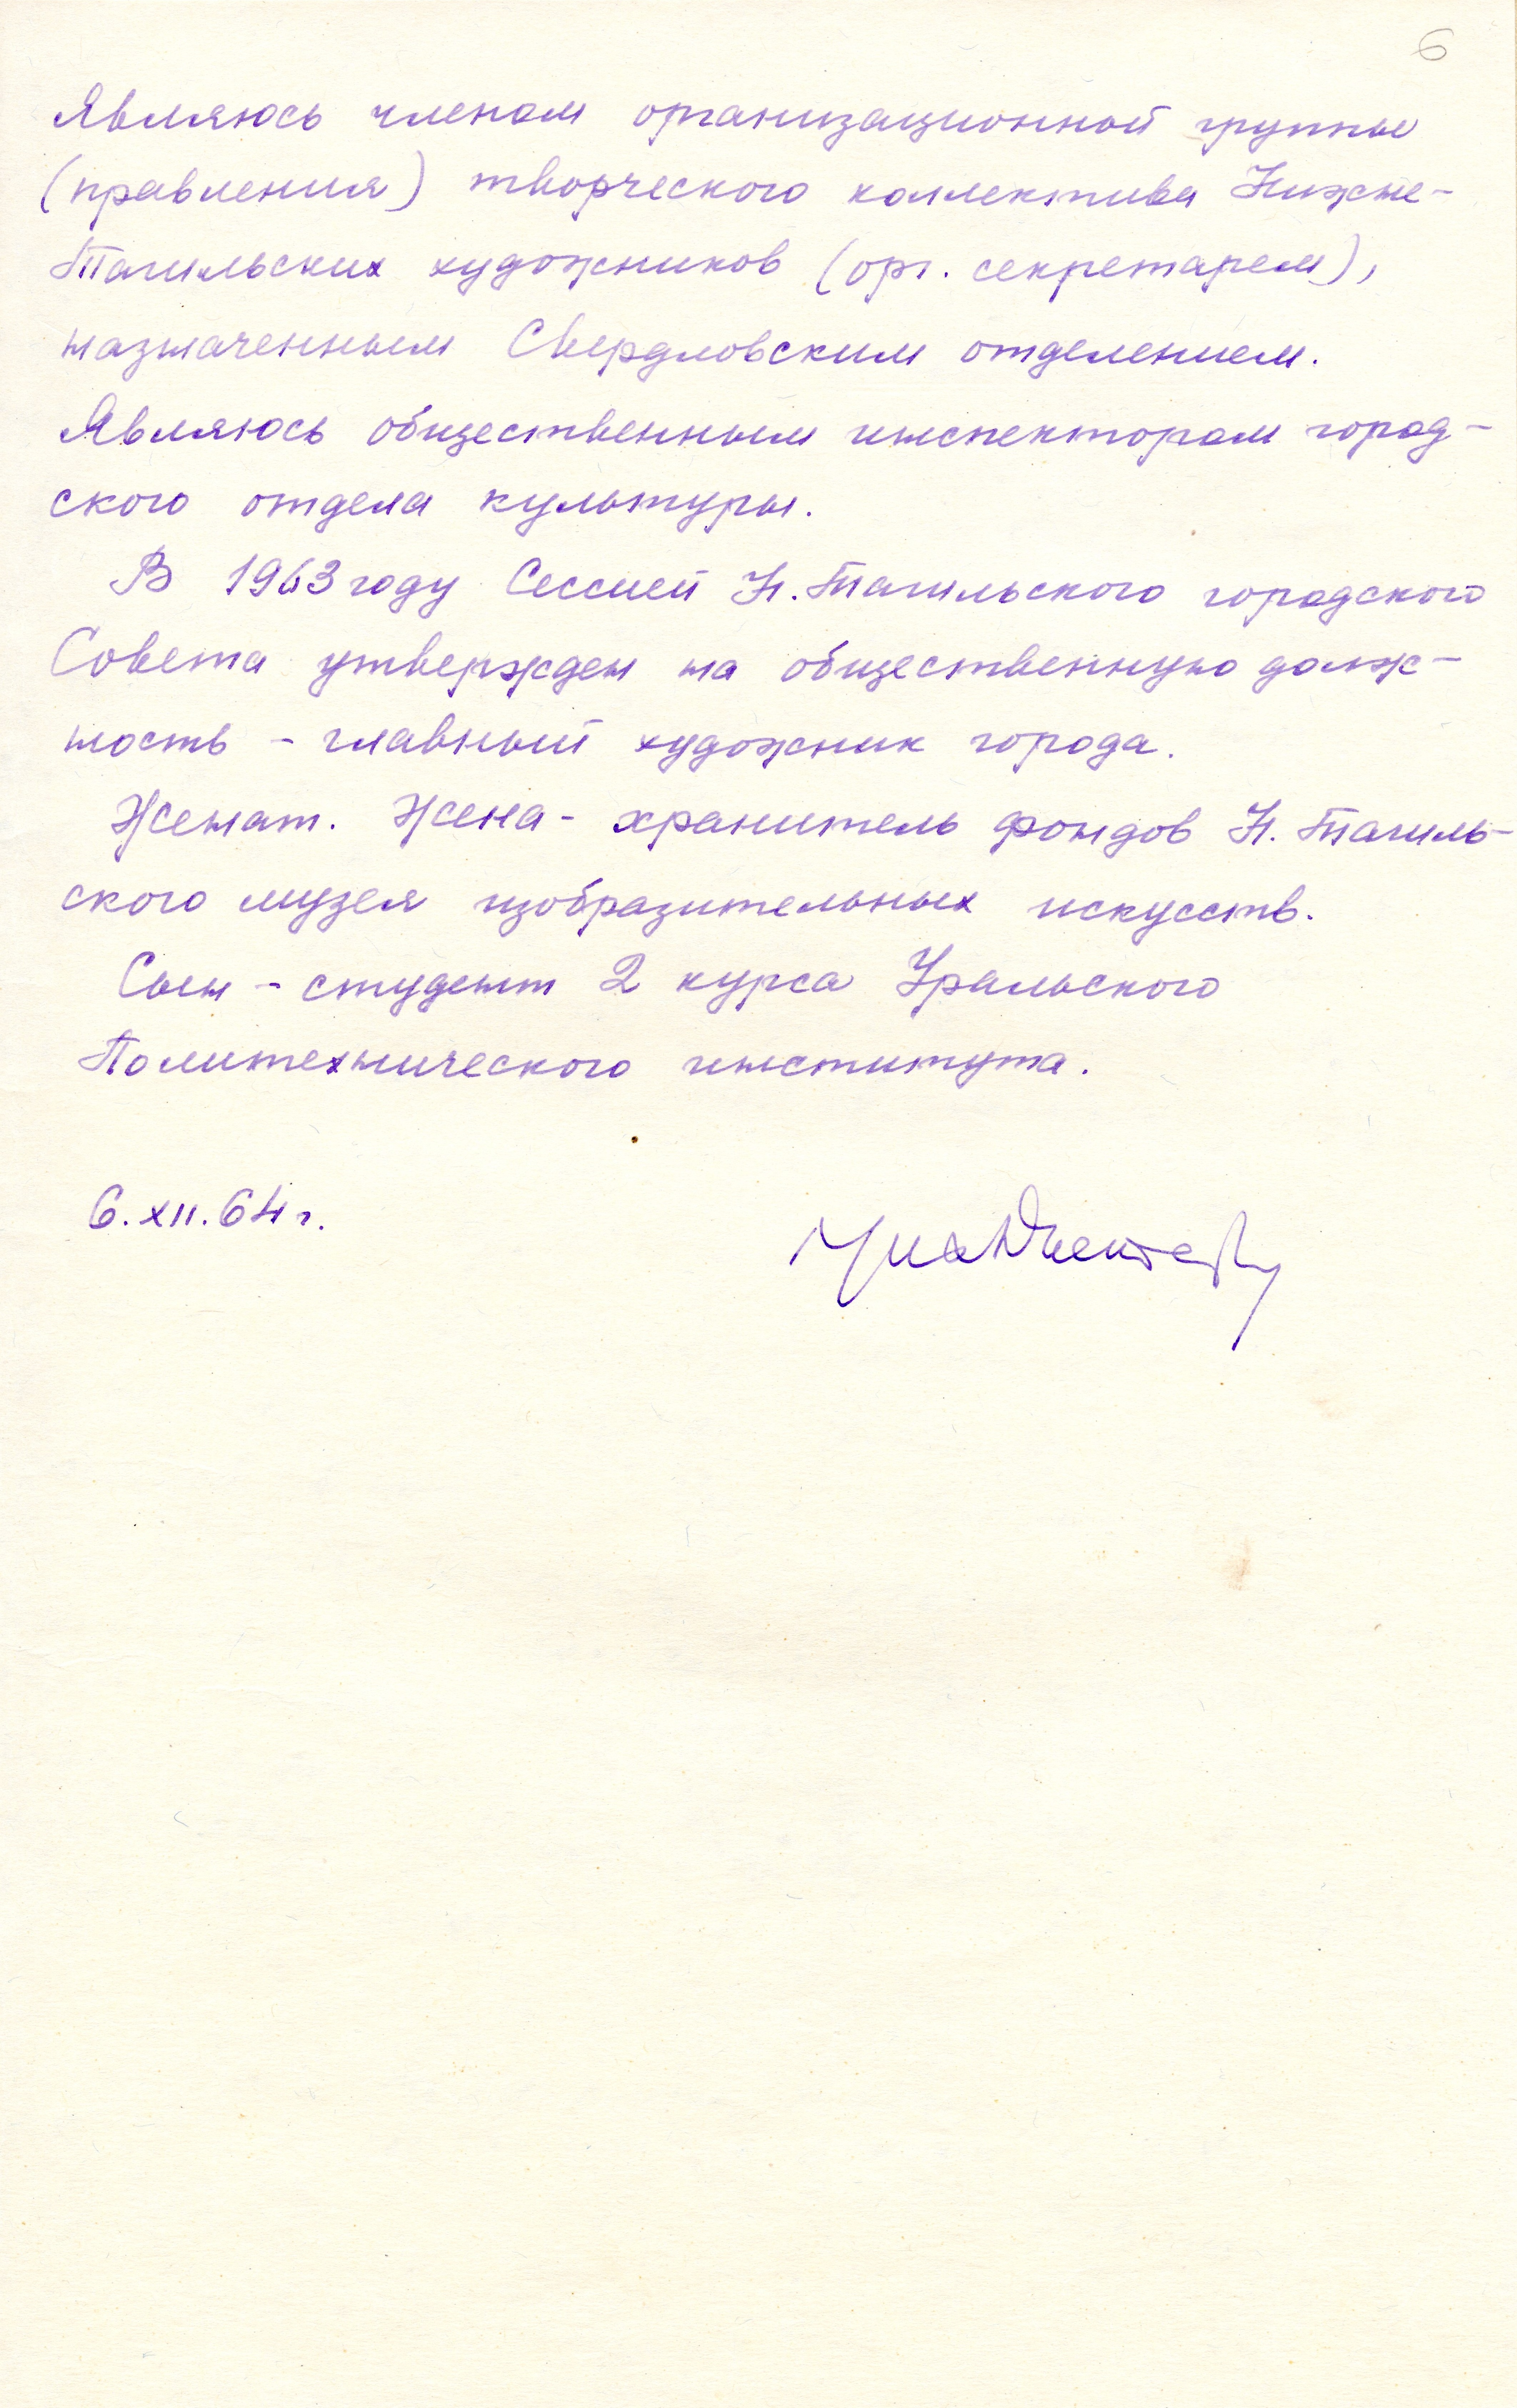 6
Являюсь членом организационной группы
(правления) творческого коллектива Нижне-
Тагильских художников (орг. секретарем),
назначенным Свердловским отделением.
Являюсь общественным инспектором город-
ского отдела культуры.
В 1963 году Сессией Н. Тагильского городского
Совета утвержден на общественную долж-
ность - главный художник города.
Женат. Жена - хранитель фондов Н. Тагиль-
ского музея изобразительных искусств.
Сын - студент 2 курса Уральского
Политехнического института.
6.XII.64 г.